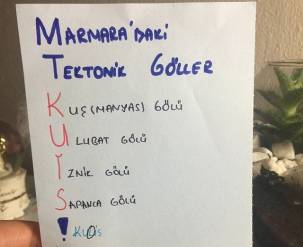 MARMARA'DAKİ
TEKTONİK GÖLLER
KUŞ(MANYAS) GÖLÜ
ULUBAT GÖLÜ
İZNİK GÖLÜ
SAPANCA GÖLÜ